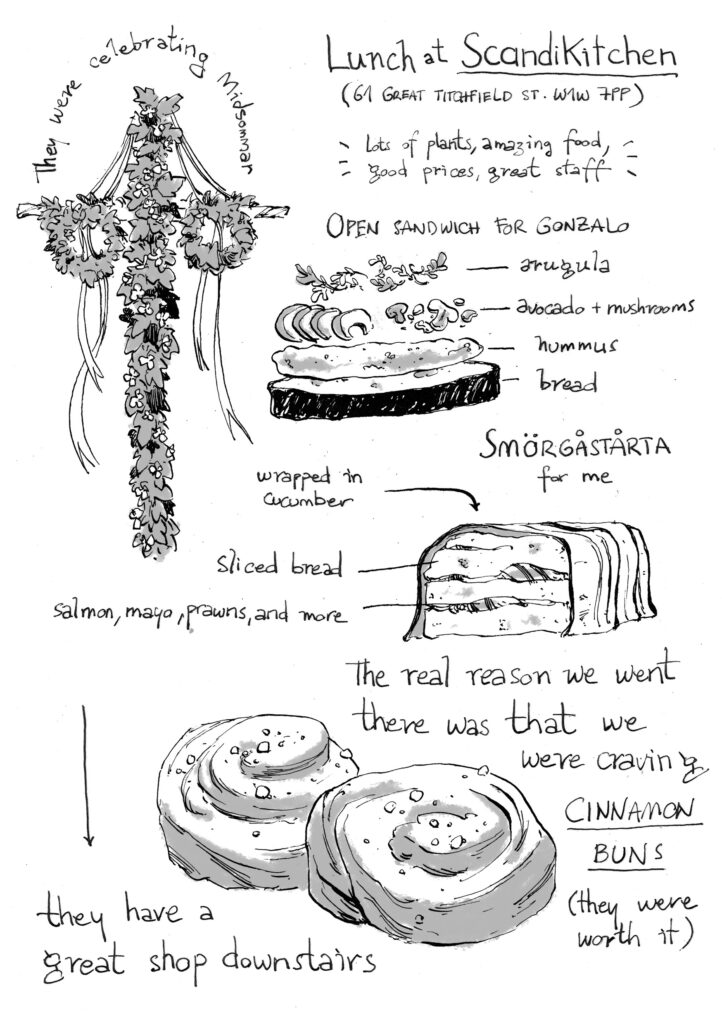 They were celebrating Midsommar
Lunch at ScandiKitchen
(61 GREAT TITCHFIELD ST. W1W 7PP)
Lots of plants, amazing food,
good prices, great staff
OPEN SANDWICH FOR GONZALO
arugula
avocado + mushrooms
hummus
bread
SMÖRGÅSTÅRTA
for me
wrapped in
cucumber
sliced bread
salmon, mayo, prawns, and more
The real reason we went
there was that we
were craving
CINNAMON
BUNS
(they were
worth it)
they have a
great shop downstairs